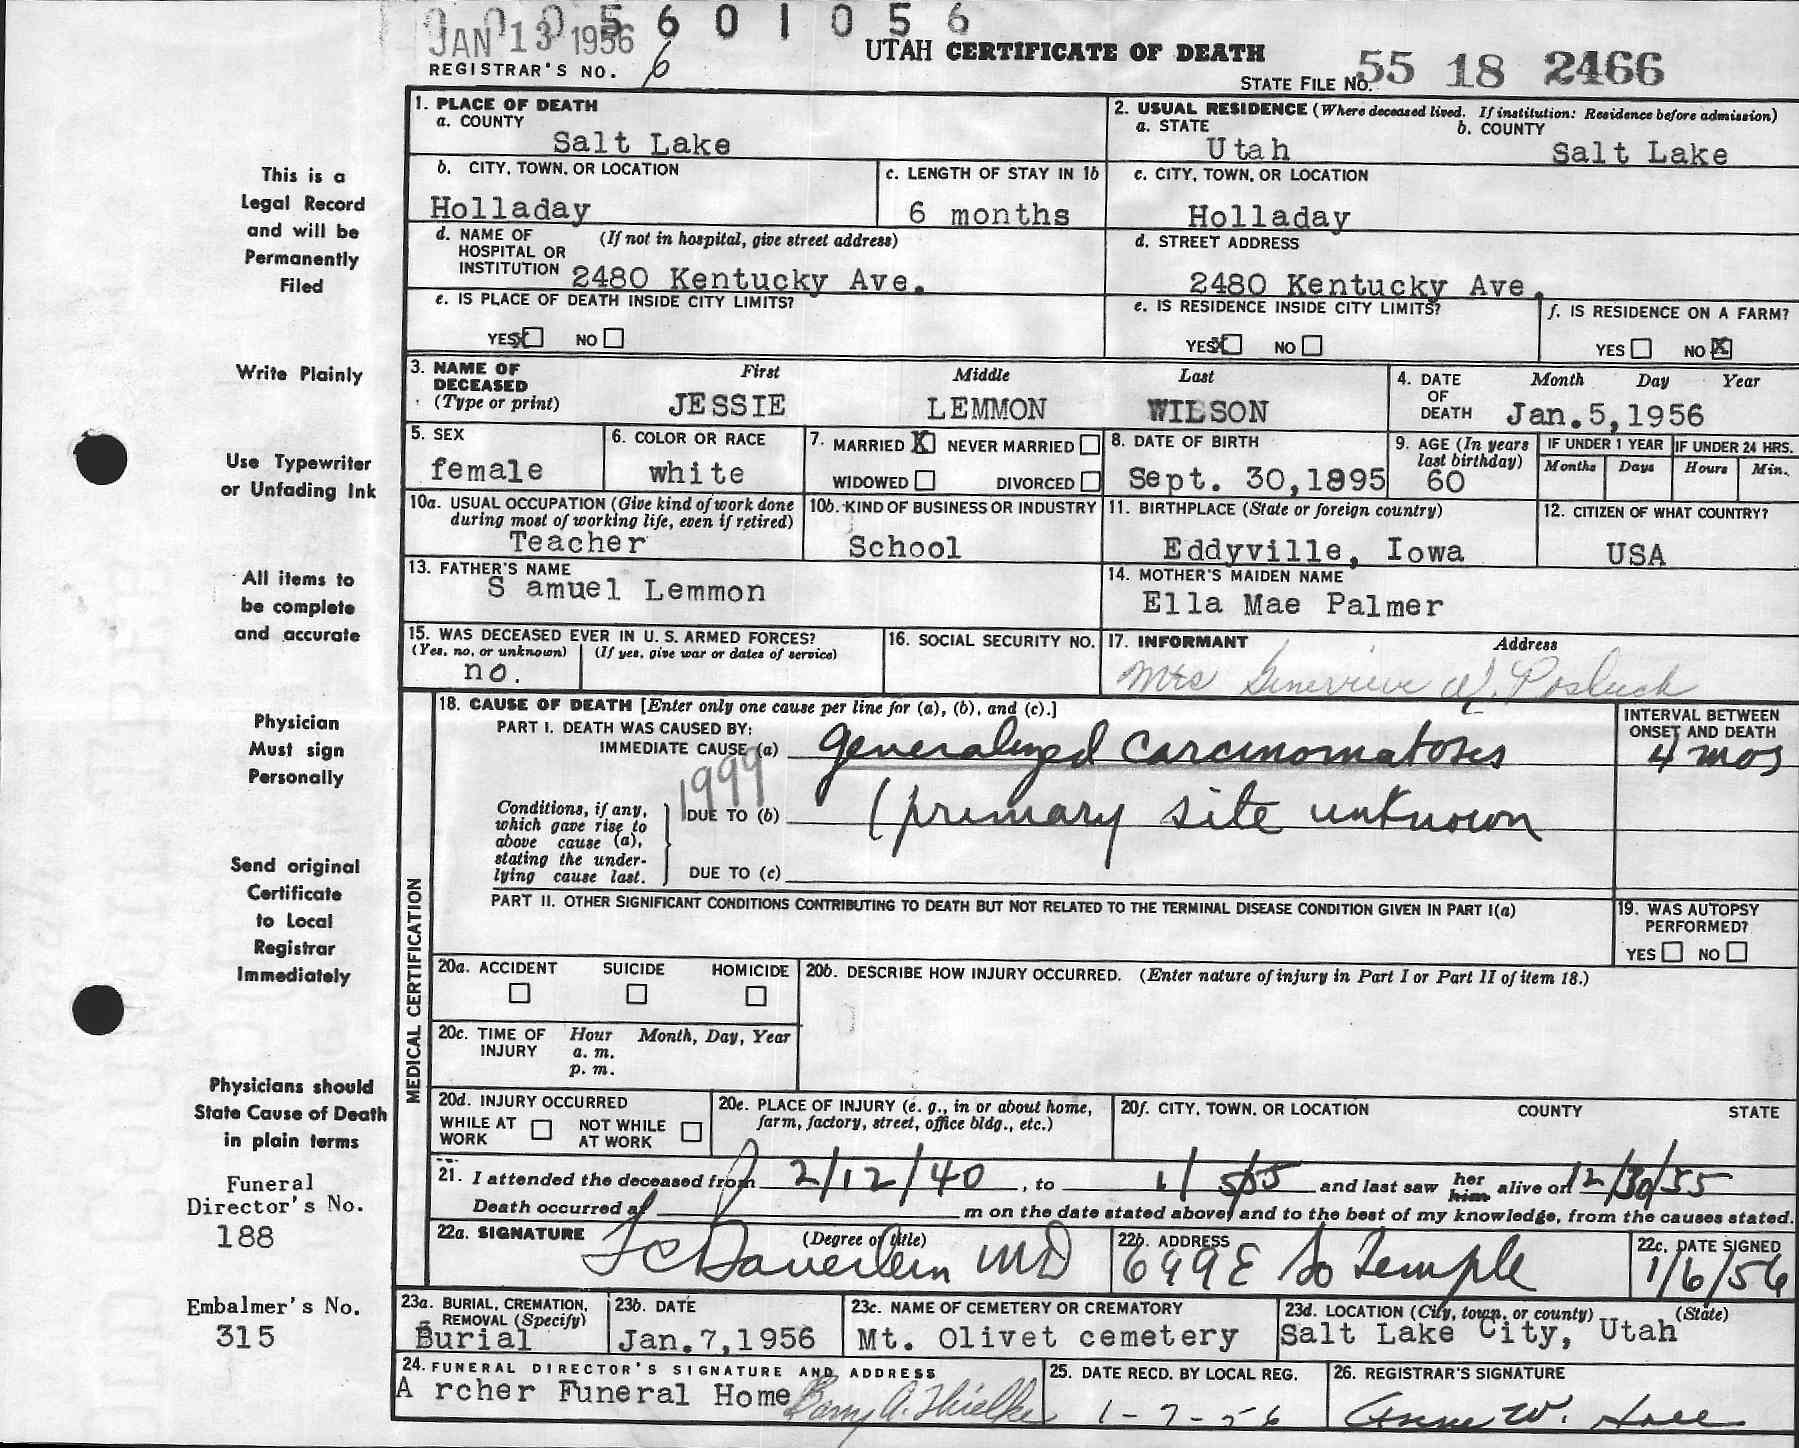 0 0 0 5 6 0 1 0 5 6
JAN 13 1956
UTAH CERTIFICATE OF DEATH
REGISTRAR'S NO. 6
STATE FILE NO. 55 18 2466
1. PLACE OF DEATH
a. COUNTY
Salt Lake
2. USUAL RESIDENCE (Where deceased lived. If institution: Residence before admission)
a. STATE b. COUNTY
Utah Salt Lake
b. CITY, TOWN, OR LOCATION
Holladay
c. LENGTH OF STAY IN 1b
6 months
c. CITY, TOWN, OR LOCATION
Holladay
d. NAME OF (If not in hospital, give street address)
HOSPITAL OR
INSTITUTION 2480 Kentucky Ave.
d. STREET ADDRESS
2480 Kentucky Ave.
e. IS PLACE OF DEATH INSIDE CITY LIMITS?
YES X NO
e. IS RESIDENCE INSIDE CITY LIMITS?
YES X NO
f. IS RESIDENCE ON A FARM?
YES NO X
3. NAME OF DECEASED (Type or print)
First Middle Last
JESSIE LEMMON WILSON
4. DATE OF DEATH
Month Day Year
Jan.5,1956
5. SEX
female
6. COLOR OR RACE
white
7. MARRIED X NEVER MARRIED
WIDOWED DIVORCED
8. DATE OF BIRTH
Sept. 30,1895
9. AGE (In years last birthday)
60
IF UNDER 1 YEAR
Months Days
IF UNDER 24 HRS.
Hours Min.
10a. USUAL OCCUPATION (Give kind of work done
during most of working life, even if retired)
Teacher
10b. KIND OF BUSINESS OR INDUSTRY
School
11. BIRTHPLACE (State or foreign country)
Eddyville, Iowa
12. CITIZEN OF WHAT COUNTRY?
USA
13. FATHER'S NAME
S amuel Lemmon
14. MOTHER'S MAIDEN NAME
Ella Mae Palmer
15. WAS DECEASED EVER IN U. S. ARMED FORCES?
(Yes, no, or unknown) (If yes, give war or dates of service)
no.
16. SOCIAL SECURITY NO.
17. INFORMANT Address
Mrs Genevieve W.
MEDICAL CERTIFICATION
18. CAUSE OF DEATH [Enter only one cause per line for (a), (b), and (c).]
PART I. DEATH WAS CAUSED BY:
IMMEDIATE CAUSE (a) generalized carcinomatosis
INTERVAL BETWEEN
ONSET AND DEATH
4 mos
1999
Conditions, if any,
which gave rise to
above cause (a),
stating the under-
lying cause last.
DUE TO (b) (primary site unknown
DUE TO (c)
PART II. OTHER SIGNIFICANT CONDITIONS CONTRIBUTING TO DEATH BUT NOT RELATED TO THE TERMINAL DISEASE CONDITION GIVEN IN PART I(a)
19. WAS AUTOPSY
PERFORMED?
YES NO
20a. ACCIDENT SUICIDE HOMICIDE
20b. DESCRIBE HOW INJURY OCCURRED. (Enter nature of injury in Part I or Part II of item 18.)
20c. TIME OF INJURY
Hour Month, Day, Year
a. m.
p. m.
20d. INJURY OCCURRED
WHILE AT WORK NOT WHILE AT WORK
20e. PLACE OF INJURY (e. g., in or about home,
farm, factory, street, office bldg., etc.)
20f. CITY, TOWN, OR LOCATION COUNTY STATE
21. I attended the deceased from 2/12/40, to 1/5/55 and last saw her him alive on 12/30/55
Death occurred at m on the date stated above, and to the best of my knowledge, from the causes stated.
22a. SIGNATURE (Degree or title)
MD
22b. ADDRESS
699 E So Temple
22c. DATE SIGNED
1/6/56
23a. BURIAL, CREMATION,
REMOVAL (Specify)
Burial
23b. DATE
Jan.7,1956
23c. NAME OF CEMETERY OR CREMATORY
Mt. Olivet cemetery
23d. LOCATION (City, town, or county) (State)
Salt Lake City, Utah
24. FUNERAL DIRECTOR'S SIGNATURE AND ADDRESS
A rcher Funeral Home
25. DATE RECD. BY LOCAL REG.
1-7-56
26. REGISTRAR'S SIGNATURE
Anne W.
This is a
Legal Record
and will be
Permanently
Filed
Write Plainly
Use Typewriter
or Unfading Ink
All items to
be complete
and accurate
Physician
Must sign
Personally
Send original
Certificate
to Local
Registrar
Immediately
Physicians should
State Cause of Death
in plain terms
Funeral
Director's No.
188
Embalmer's No.
315